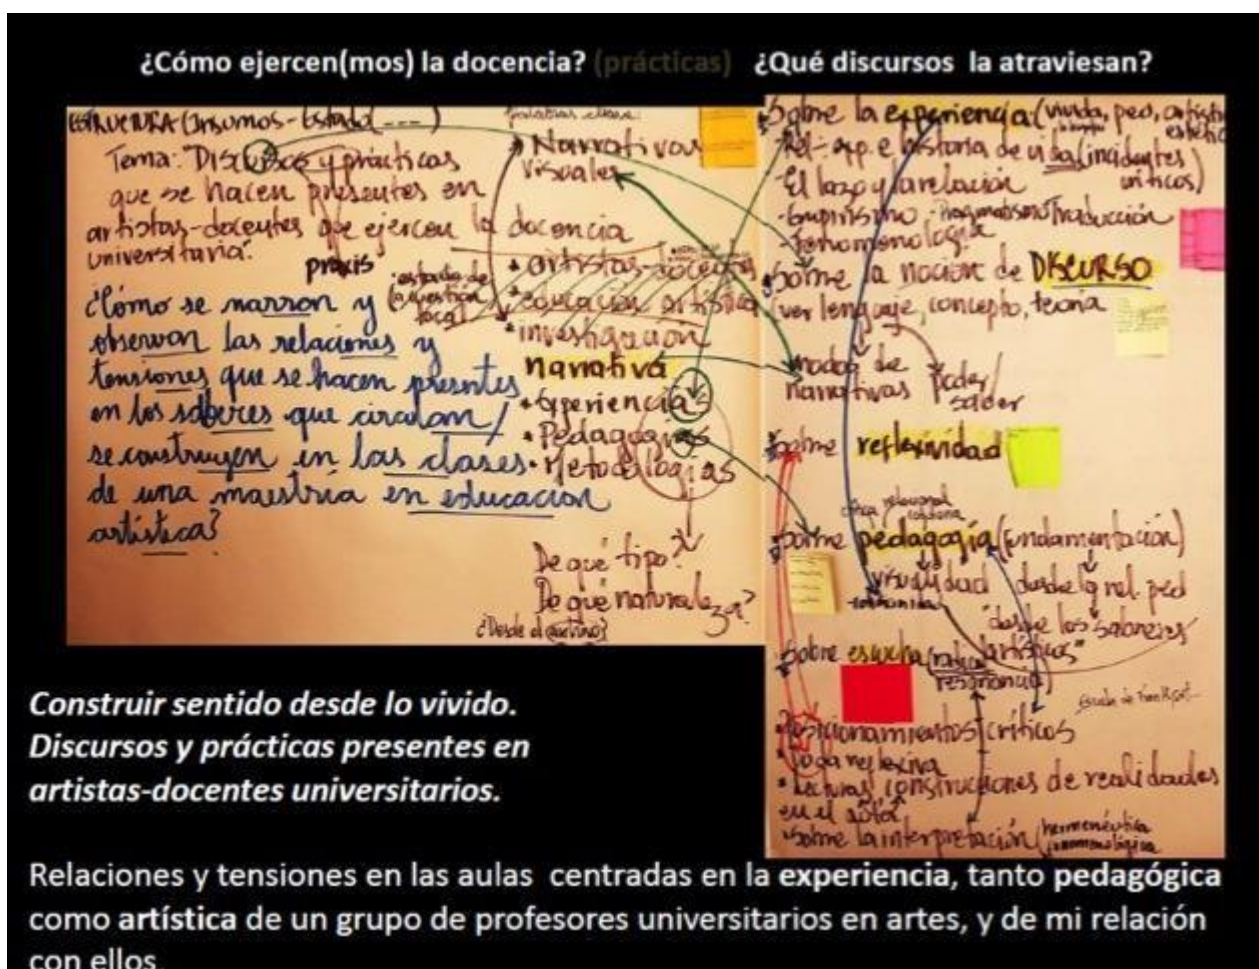 ¿Cómo ejercen(mos) la docencia? (prácticas) ¿Qué discursos la atraviesan?
ESTRUCTURA (Insumos - Estado
Tema: "Discursos y prácticas
que se hacen presentes en
artistas-docentes que ejercen la docencia
universitaria".
praxis
¿Cómo se narran y
observan las relaciones y
tensiones que se hacen presentes
en los saberes que circulan /
se construyen en las clases
de una maestría en educación
artística?
palabras clave:
• Narrativas
visuales
estado de
la cuestión
• artistas-docentes
• educación artística
• investigación
narrativa
• Experiencias
• Pedagogías
• Metodologías
De qué tipo?
De qué naturaleza?
Sobre la experiencia (vivida, ped, artíst
estétic
Rel- exp. e historia de vida (incidentes
críticos)
El lazo y la relación
- Empirismo - Pragmatismo Traducción
- Fenomenología
Sobre la noción de DISCURSO
(ver lenguaje, concepto, teoría
modos de
narrativas
Poder/
saber
Sobre reflexividad
relacional
Sobre pedagogía (fundamentación)
visualidad desde la rel. ped
"desde los saberes
artísticos"
Sobre escucha
resonancia
Posicionamientos críticos
reflexiva
construcciones de realidades
en el
Sobre la interpretación (hermenéutica
fenomenológica
Construir sentido desde lo vivido.
Discursos y prácticas presentes en
artistas-docentes universitarios.
Relaciones y tensiones en las aulas centradas en la experiencia, tanto pedagógica
como artística de un grupo de profesores universitarios en artes, y de mi relación
con ellos